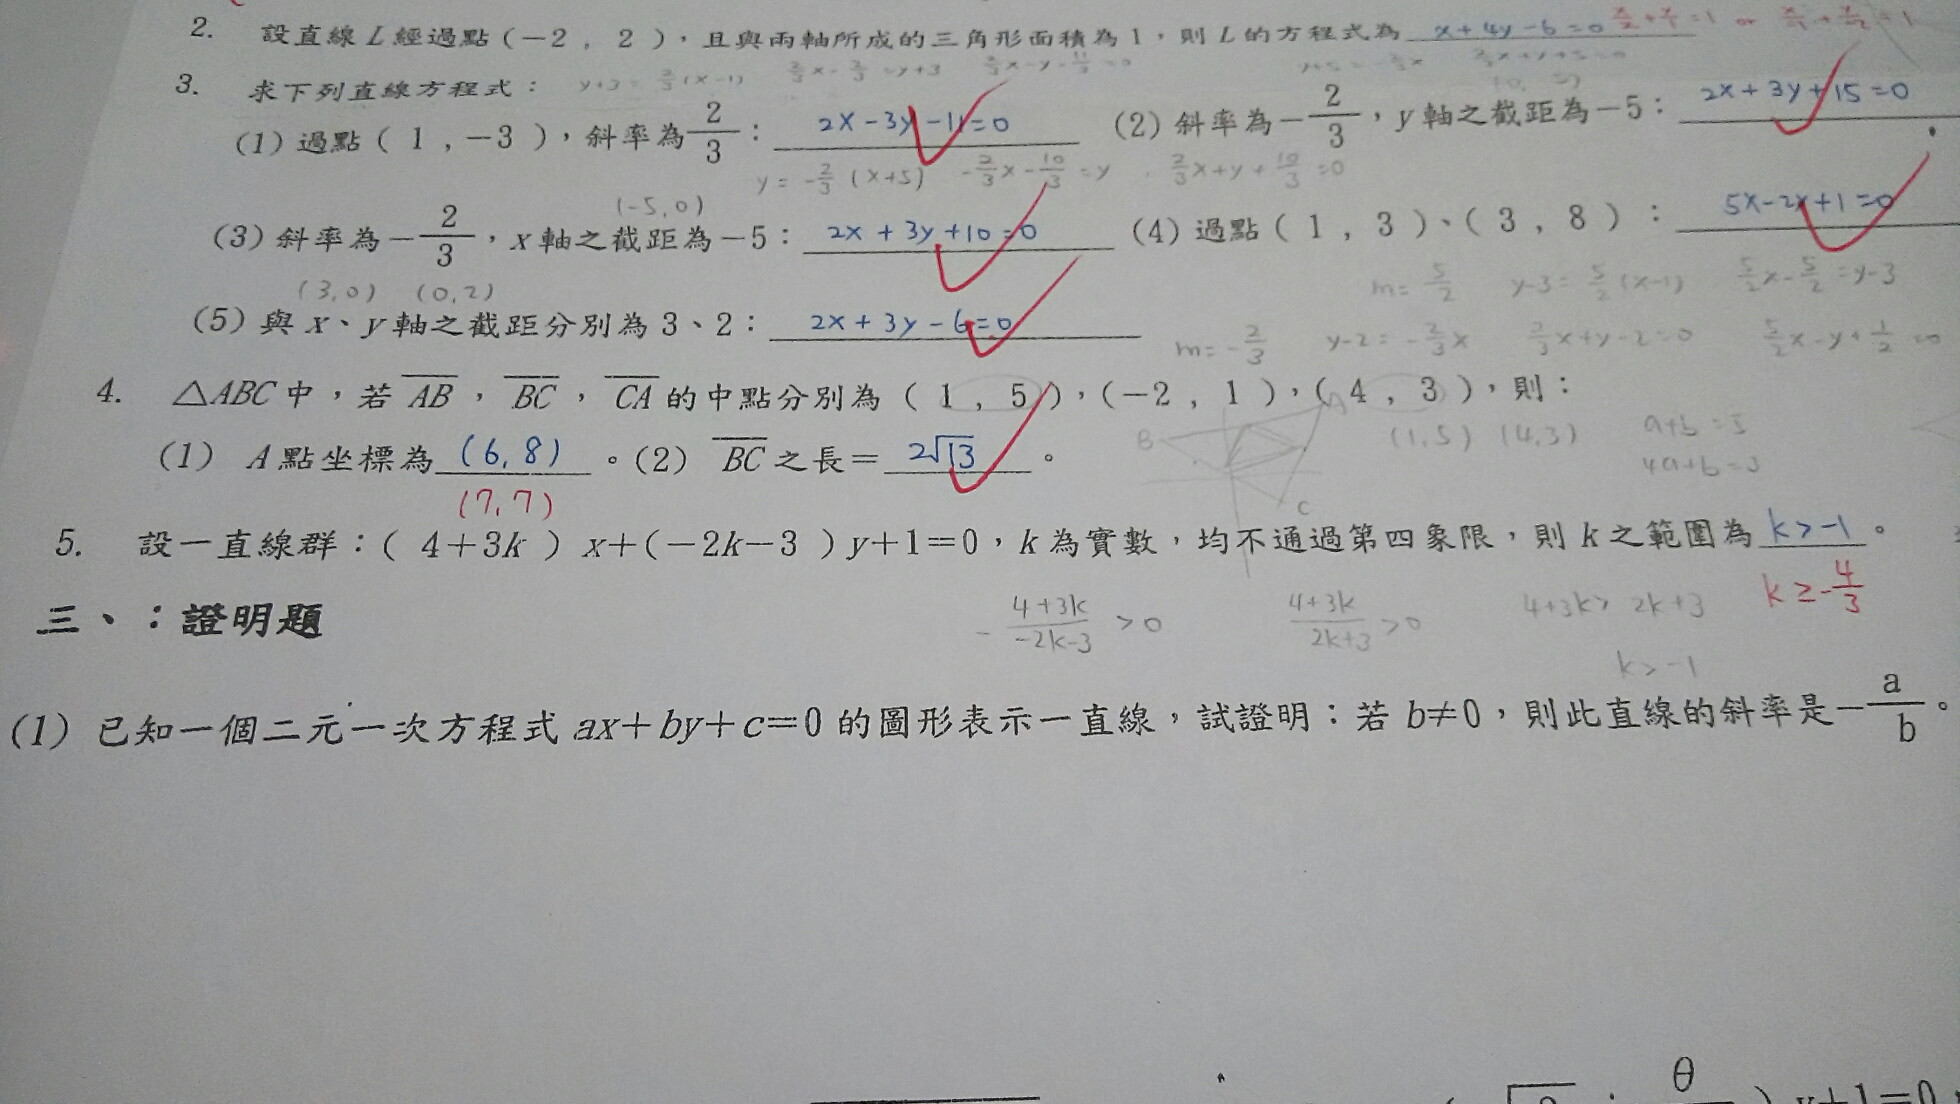 2. 設直線L經過點(-2,2),且與兩軸所成的三角形面積為1,則L的方程式為 x+4y-6=0 x/2+y/1=1 or
3. 求下列直線方程式: y+3=2/3(x-1) 2/3x-2/3=y+3 2/3x-y-11/3=0
(1)過點(1,-3),斜率為2/3: 2x-3y-11=0 (2)斜率為-2/3,y軸之截距為-5: 2x+3y+15=0
y=-2/3(x+5) -2/3x-10/3=y 2/3x+y+10/3=0
(-5,0)
(3)斜率為-2/3,x軸之截距為-5: 2x+3y+10=0 (4)過點(1,3)、(3,8): 5x-2y+1=0
m=5/2 y-3=5/2(x-1) 5/2x-5/2=y-3
(3,0) (0,2)
(5)與x、y軸之截距分別為3、2: 2x+3y-6=0
m=-2/3 y-2=-2/3x 2/3x+y-2=0 5/2x-y+1/2=0
4. △ABC中,若AB,BC,CA的中點分別為(1,5),(-2,1),(4,3),則:
B A C (1,5) (4,3) a+b=5
4a+b=3
(1) A點坐標為(6,8)。(2) BC之長=2√13。
(7,7)
5. 設一直線群:(4+3k)x+(-2k-3)y+1=0,k為實數,均不通過第四象限,則k之範圍為k>-1。
k≥-4/3
-(4+3k)/(-2k-3)>0 (4+3k)/(2k+3)>0 4+3k>2k+3
k>-1
三、:證明題
(1)已知一個二元一次方程式ax+by+c=0的圖形表示一直線,試證明:若b≠0,則此直線的斜率是-a/b。
θ
)y+1=0